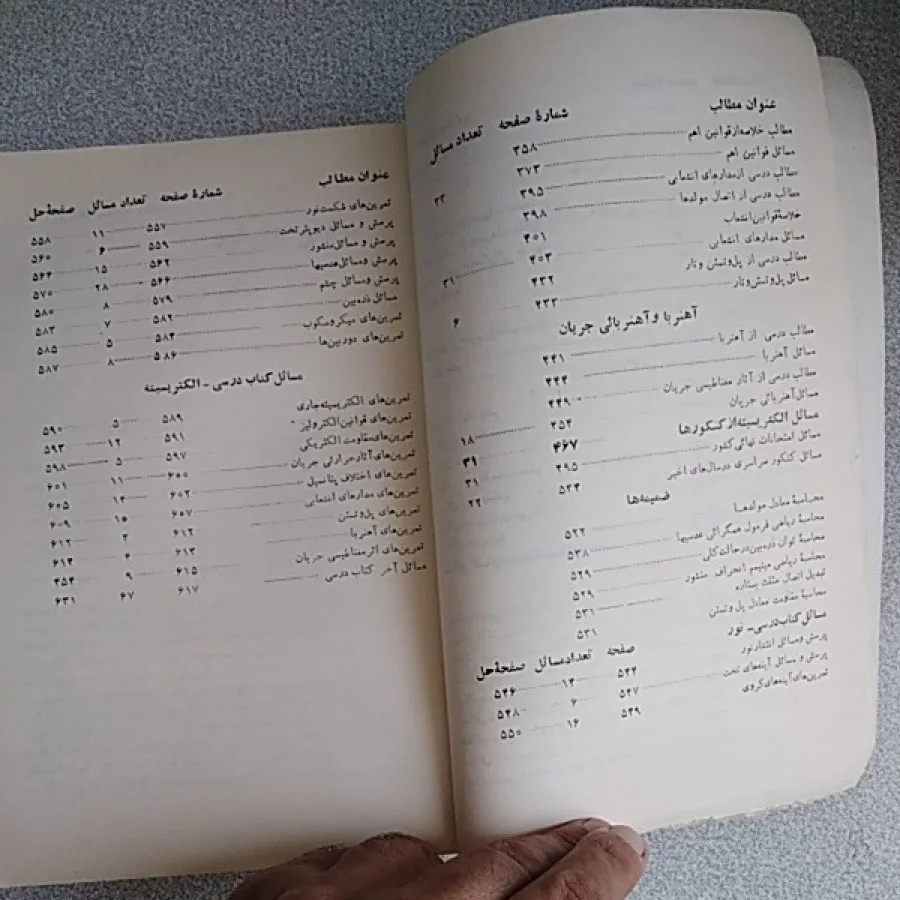 عنوان مطالب شمارهٔ صفحه تعداد مسائل
مطالب خلاصه از قوانین اهم ۳۵۸
مسائل قوانین اهم ۳۷۳ ۲۲
مطالب درسی از مدارهای انشعابی ۳۹۵
مطالب درسی از اتصال مولدها ۳۹۸
خلاصهٔ قوانین انشعاب ۴۰۱
مسائل مدارهای انشعابی ۴۰۳ ۳۱
مطالب درسی از پل وتستن و تار ۴۳۲
مسائل پل وتستن و تار ۴۳۳ ۶
آهنربا و آهنربائی جریان
مطالب درسی از آهنربا ۴۴۱
مسائل آهنربا ۴۴۴
مطالب درسی از آثار مغناطیسی جریان ۴۴۹
مسائل آهنربائی جریان ۴۵۴ ۱۸
مسائل الکتریسیته از کنکورها ۴۶۷ ۳۱
مسائل امتحانات نهائی کشور ۴۹۵ ۳۱
مسائل کنکور سراسری در سال‌های اخیر ۵۲۴ ۲۲
ضمیمه‌ها
محاسبهٔ معادل مولدها ۵۲۲
محاسبهٔ ریاضی فرمول همگرائی عدسیها ۵۲۸
محاسبهٔ توان ذره‌بین در حالت کلی ۵۲۹
محاسبهٔ ریاضی مینیمم انحراف منشور ۵۲۹
تبدیل اتصال مثلث بستاره ۵۳۱
محاسبهٔ مقاومت معادل پل وتستن ۵۳۱
مسائل کتاب درسی - نور
صفحه تعداد مسائل صفحهٔ حل
پرسش و مسائل انتشار نور ۵۴۴ ۱۴ ۵۴۶
پرسش و مسائل آینه‌های تخت ۵۴۷ ۶ ۵۴۸
تمرین‌های آینه‌های کروی ۵۴۹ ۱۶ ۵۵۰
عنوان مطالب شمارهٔ صفحه تعداد مسائل صفحهٔ حل
تمرین‌های شکست نور ۵۵۷ ۱۱ ۵۵۸
پرسش و مسائل دیوپتر تخت ۵۵۹ ۶ ۵۶۰
پرسش و مسائل منشور ۵۶۲ ۱۵ ۵۶۴
پرسش و مسائل عدسیها ۵۶۶ ۲۸ ۵۷۰
پرسش و مسائل چشم ۵۷۹ ۸ ۵۸۰
مسائل ذره‌بین ۵۸۲ ۷ ۵۸۳
تمرین‌های میکروسکوپ ۵۸۴ ۵ ۵۸۵
تمرین‌های دوربین‌ها ۵۸۶ ۸ ۵۸۷
مسائل کتاب درسی - الکتریسیته
تمرین‌های الکتریسیته جاری ۵۸۹ ۵ ۵۹۰
تمرین‌های قوانین الکترولیز ۵۹۱ ۱۲ ۵۹۳
تمرین‌های مقاومت الکتریکی ۵۹۷ ۵ ۵۹۸
تمرین‌های آثار حرارتی جریان ۶۰۰ ۱۱ ۶۰۱
تمرین‌های اختلاف پتانسیل ۶۰۲ ۱۴ ۶۰۵
تمرین‌های مدارهای انشعابی ۶۰۷ ۱۵ ۶۰۹
تمرین‌های پل وتستن ۶۱۲ ۳ ۶۱۲
تمرین‌های آهنربا ۶۱۳ ۴ ۶۱۴
تمرین‌های اثر مغناطیسی جریان ۶۱۵ ۹ ۴۵۴
مسائل آخر کتاب درسی ۶۱۷ ۶۷ ۶۳۱